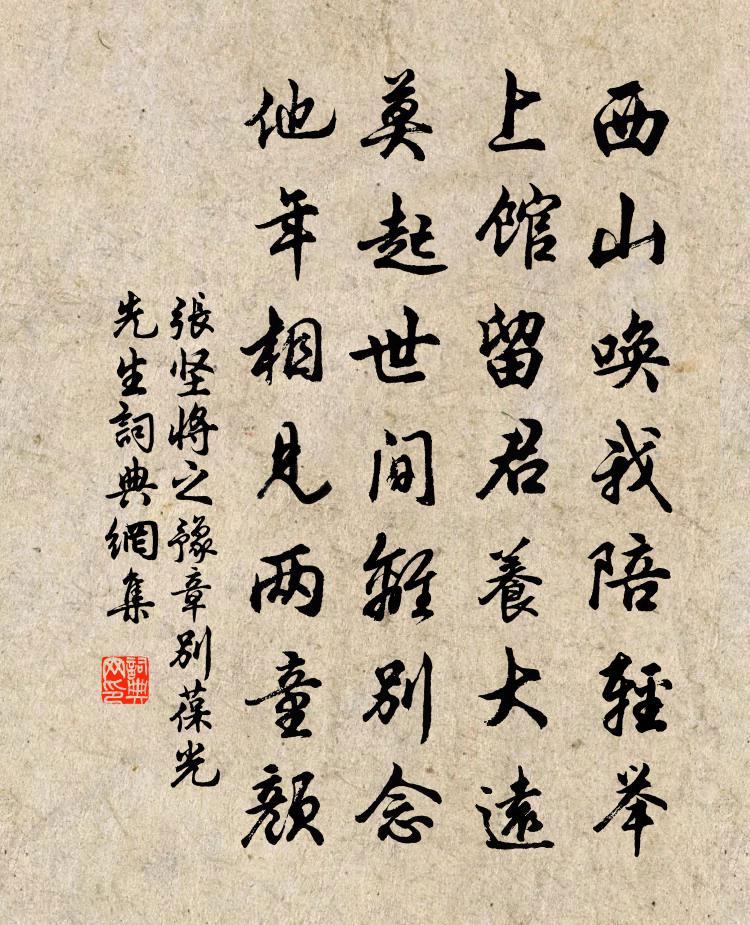 西山唤我陪輕举
上館留君養大遠
莫起世间離别念
他年相見两童顔
張坚將之豫章别葆光
先生詞典網集
詞典网印